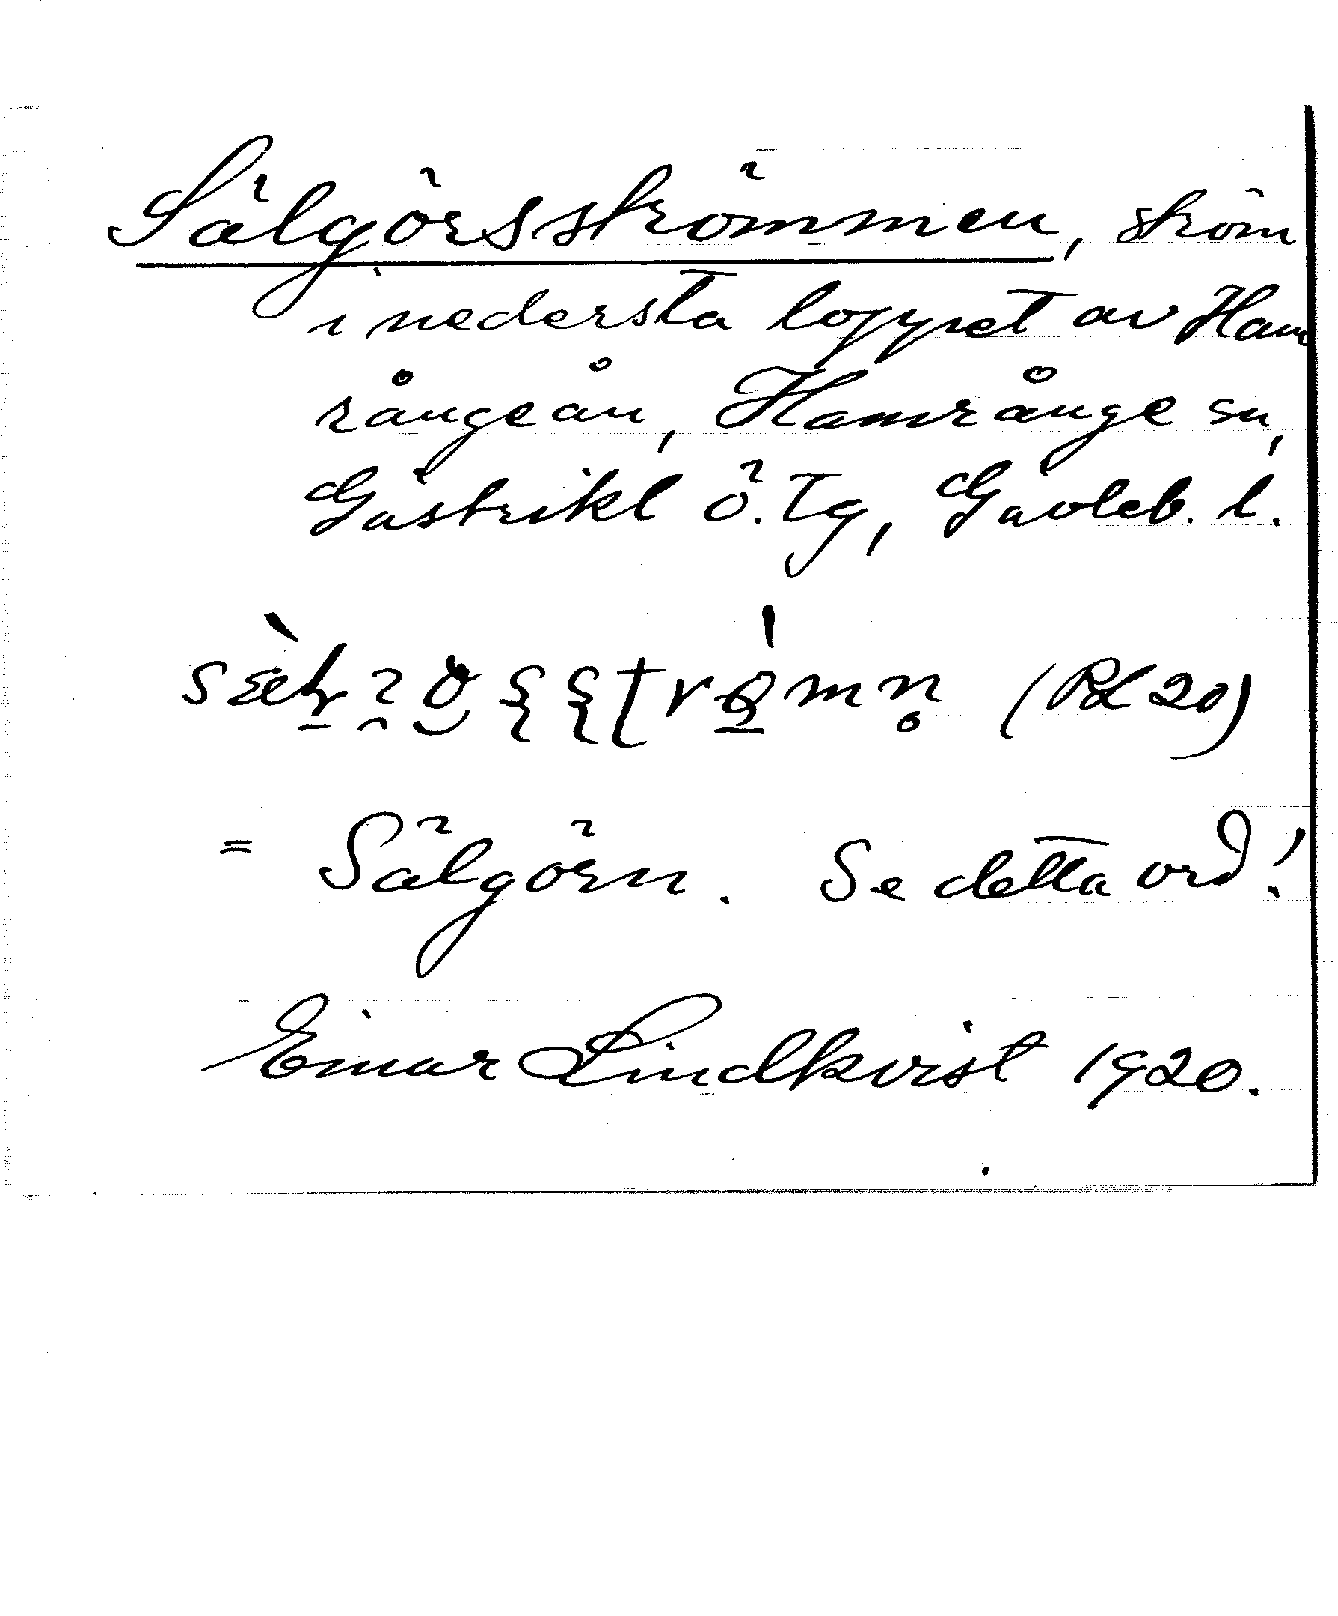 Sälgörsströmmen, ström
i nedersta loppet av Ham
rångeån, Hamrånge sn,
Gästrikl ö. Tg, Gävleb. l.
= Sälgörn. Se detta ord!
Einar Lindkvist 1920.